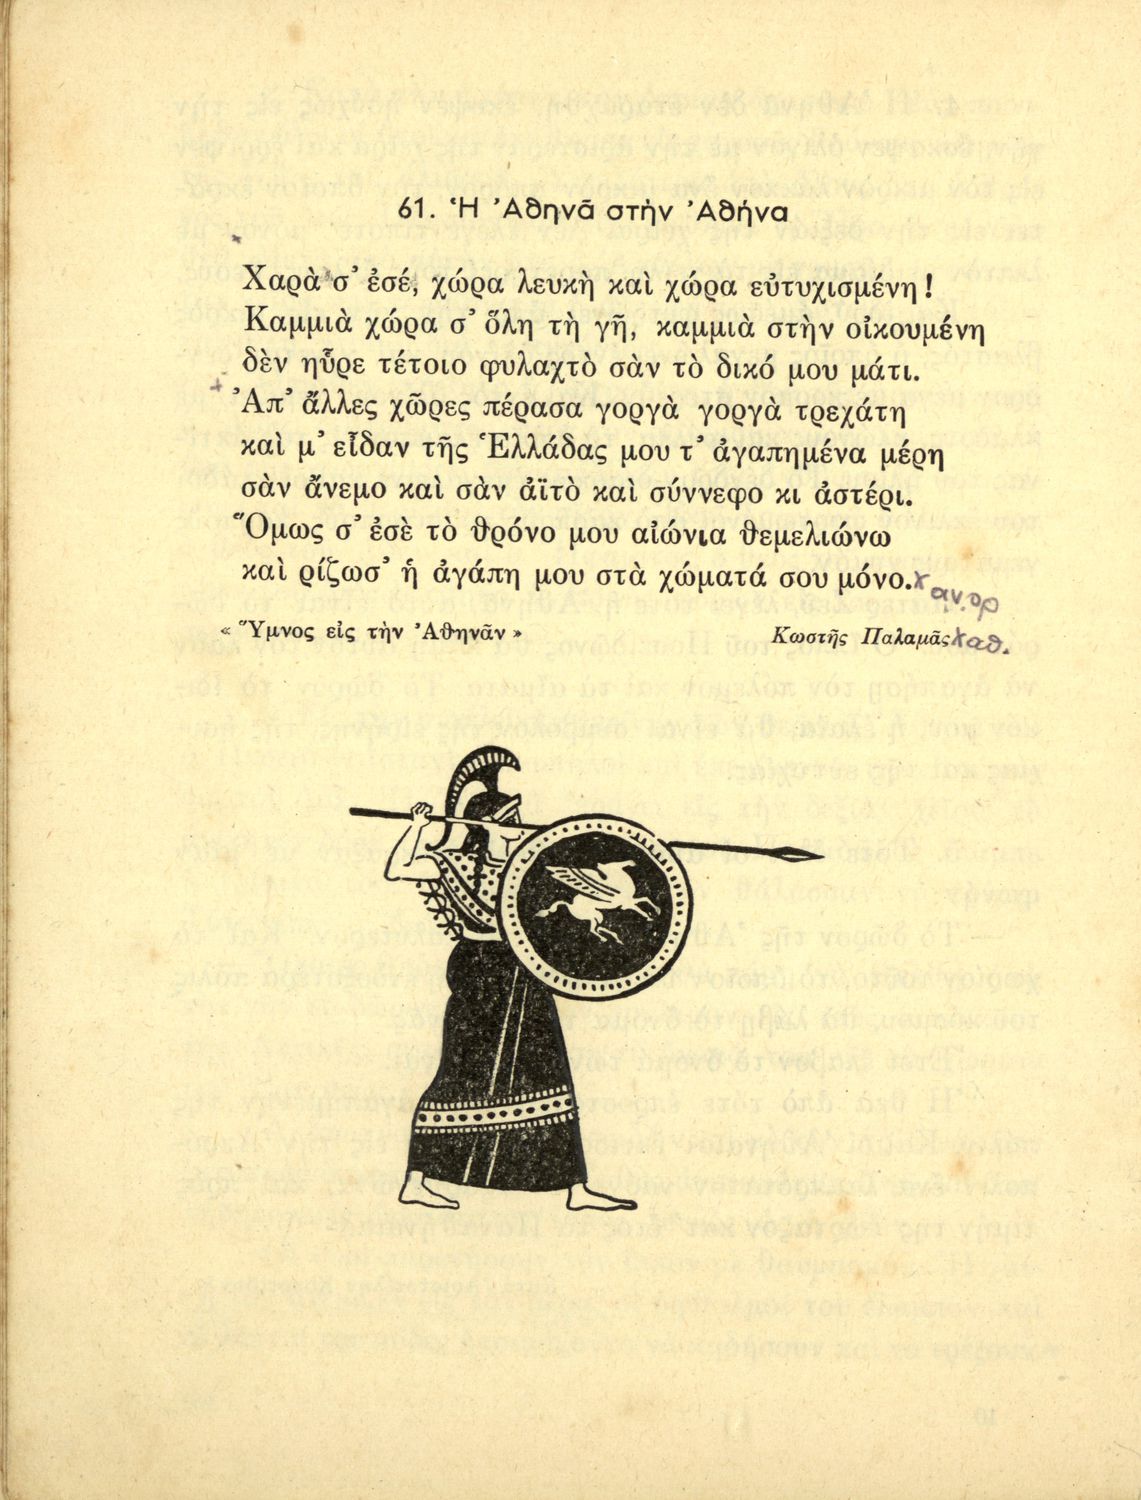 61. Ἡ Ἀθηνᾶ στὴν Ἀθήνα
Χαρὰ σ’ ἐσέ, χώρα λευκὴ καὶ χώρα εὐτυχισμένη !
Καμμιὰ χώρα σ’ ὅλη τὴ γῆ, καμμιὰ στὴν οἰκουμένη
δὲν ηὗρε τέτοιο φυλαχτὸ σὰν τὸ δικό μου μάτι.
Ἀπ’ ἄλλες χῶρες πέρασα γοργὰ γοργὰ τρεχάτη
καὶ μ’ εἶδαν τῆς Ἑλλάδας μου τ’ ἀγαπημένα μέρη
σὰν ἄνεμο καὶ σὰν ἀϊτὸ καὶ σύννεφο κι ἀστέρι.
Ὅμως σ’ ἐσὲ τὸ θρόνο μου αἰώνια θεμελιώνω
καὶ ρίζωσ’ ἡ ἀγάπη μου στὰ χώματά σου μόνο.
αν.ορ
« Ὕμνος εἰς τὴν Ἀθηνᾶν » Κωστῆς Παλαμᾶς